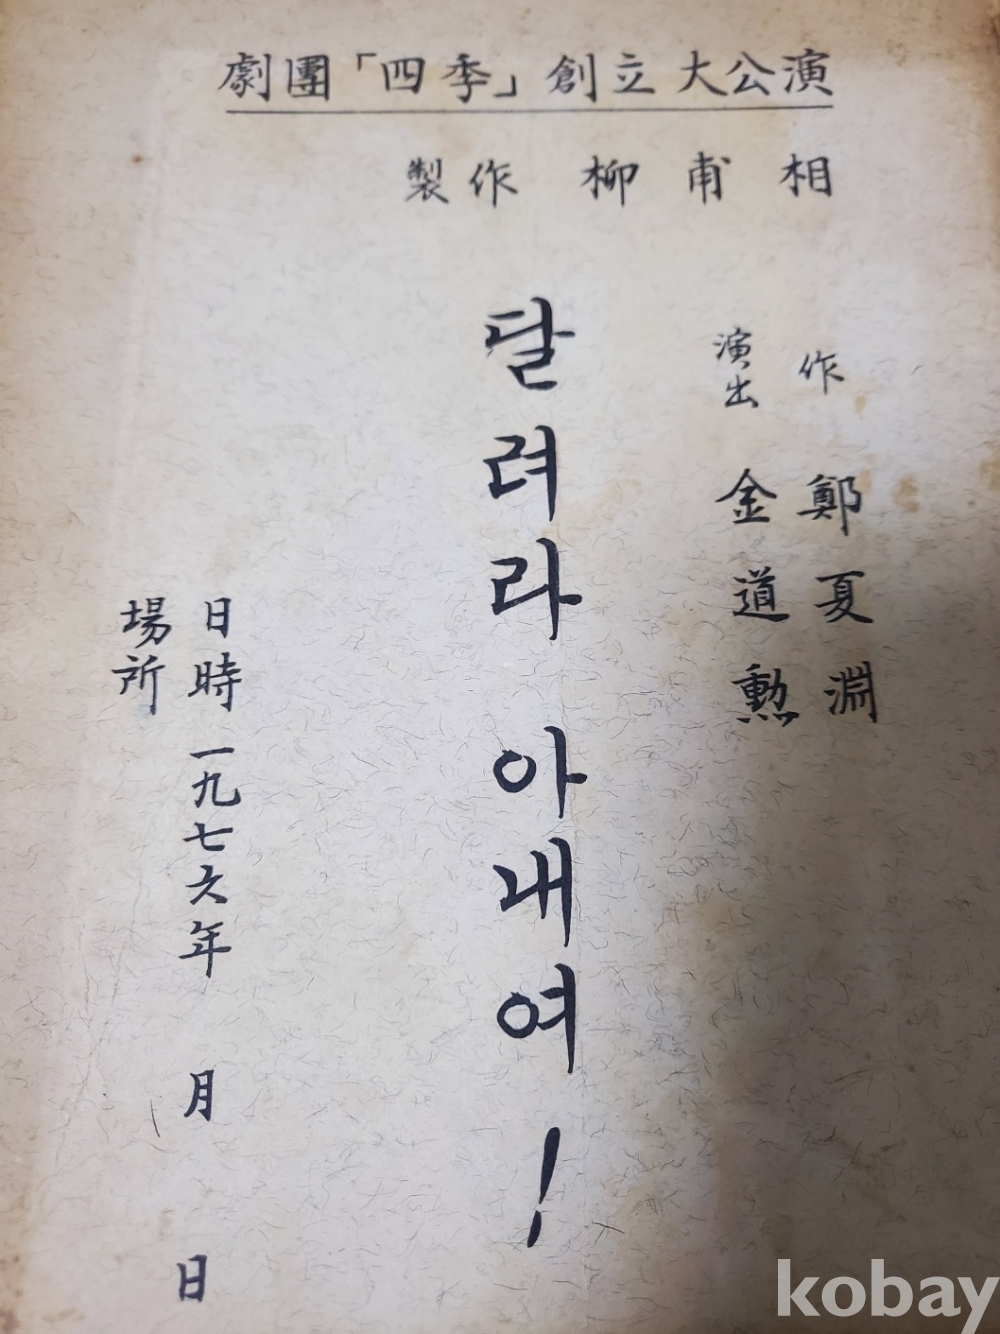 劇團「四季」創立大公演
製作 柳甫相
作 鄭夏淵
演出 金道勲
달려라 아내여!
日時 一九七六年 月 日
場所
kobay